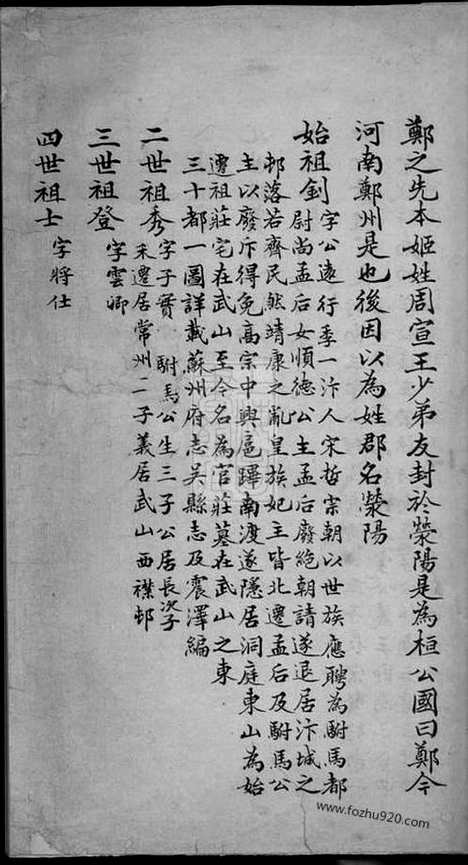 鄭之先本姬姓周宣王少弟友封於滎陽是為桓公國曰鄭今
河南鄭州是也後因以為姓郡名滎陽
始祖釗字公遠行季一汴人宋哲宗朝以世族應聘為駙馬都
尉尚孟后女順德公主孟后廢絶朝請遂退居汴城之
邨落若齊民然靖康之亂皇族妃主皆北遷孟后及駙馬公
主以廢斥得免高宗中興扈蹕南渡遂隱居洞庭東山為始
遷祖莊宅在武山至今名為官莊墓在武山之東
三十都一圖詳載蘇州府志吳縣志及震澤編
二世祖秀字子實 駙馬公生三子公居長次子
末遷居常州二子義居武山西襟邨
三世祖登字雲卿
四世祖士字將仕
www.fozhu920.com